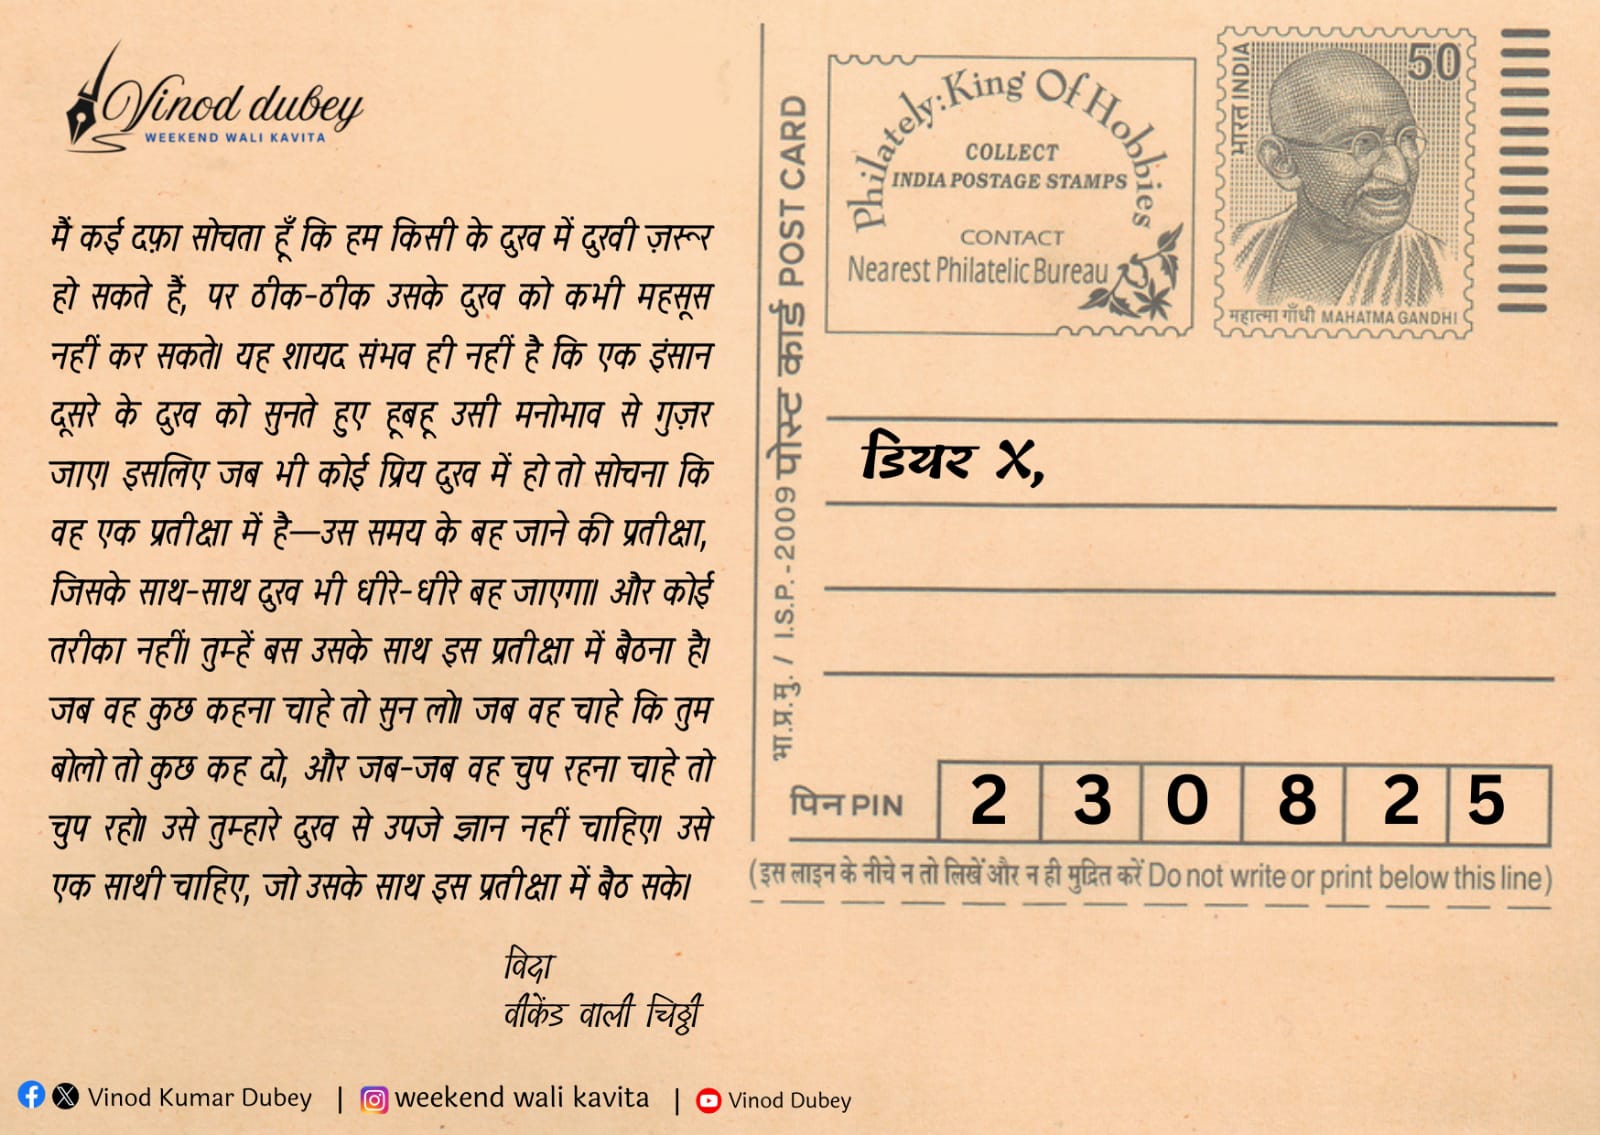 Vinod dubey
WEEKEND WALI KAVITA
मैं कई दफ़ा सोचता हूँ कि हम किसी के दुख में दुखी ज़रूर
हो सकते हैं, पर ठीक-ठीक उसके दुख को कभी महसूस
नहीं कर सकते। यह शायद संभव ही नहीं है कि एक इंसान
दूसरे के दुख को सुनते हुए हूबहू उसी मनोभाव से गुज़र
जाए। इसलिए जब भी कोई प्रिय दुख में हो तो सोचना कि
वह एक प्रतीक्षा में है—उस समय के बह जाने की प्रतीक्षा,
जिसके साथ-साथ दुख भी धीरे-धीरे बह जाएगा। और कोई
तरीका नहीं। तुम्हें बस उसके साथ इस प्रतीक्षा में बैठना है।
जब वह कुछ कहना चाहे तो सुन लो। जब वह चाहे कि तुम
बोलो तो कुछ कह दो, और जब-जब वह चुप रहना चाहे तो
चुप रहो। उसे तुम्हारे दुख से उपजे ज्ञान नहीं चाहिए। उसे
एक साथी चाहिए, जो उसके साथ इस प्रतीक्षा में बैठ सके।
विदा
वीकेंड वाली चिठ्ठी
भा.प्र.मु. / I.S.P.-2009 पोस्ट कार्ड POST CARD
Philately: King Of Hobbies
COLLECT
INDIA POSTAGE STAMPS
CONTACT
Nearest Philatelic Bureau
भारत INDIA
50
महात्मा गाँधी MAHATMA GANDHI
डियर X,
पिन PIN 2 3 0 8 2 5
(इस लाइन के नीचे न तो लिखें और न ही मुद्रित करें Do not write or print below this line)
Vinod Kumar Dubey | weekend wali kavita | Vinod Dubey